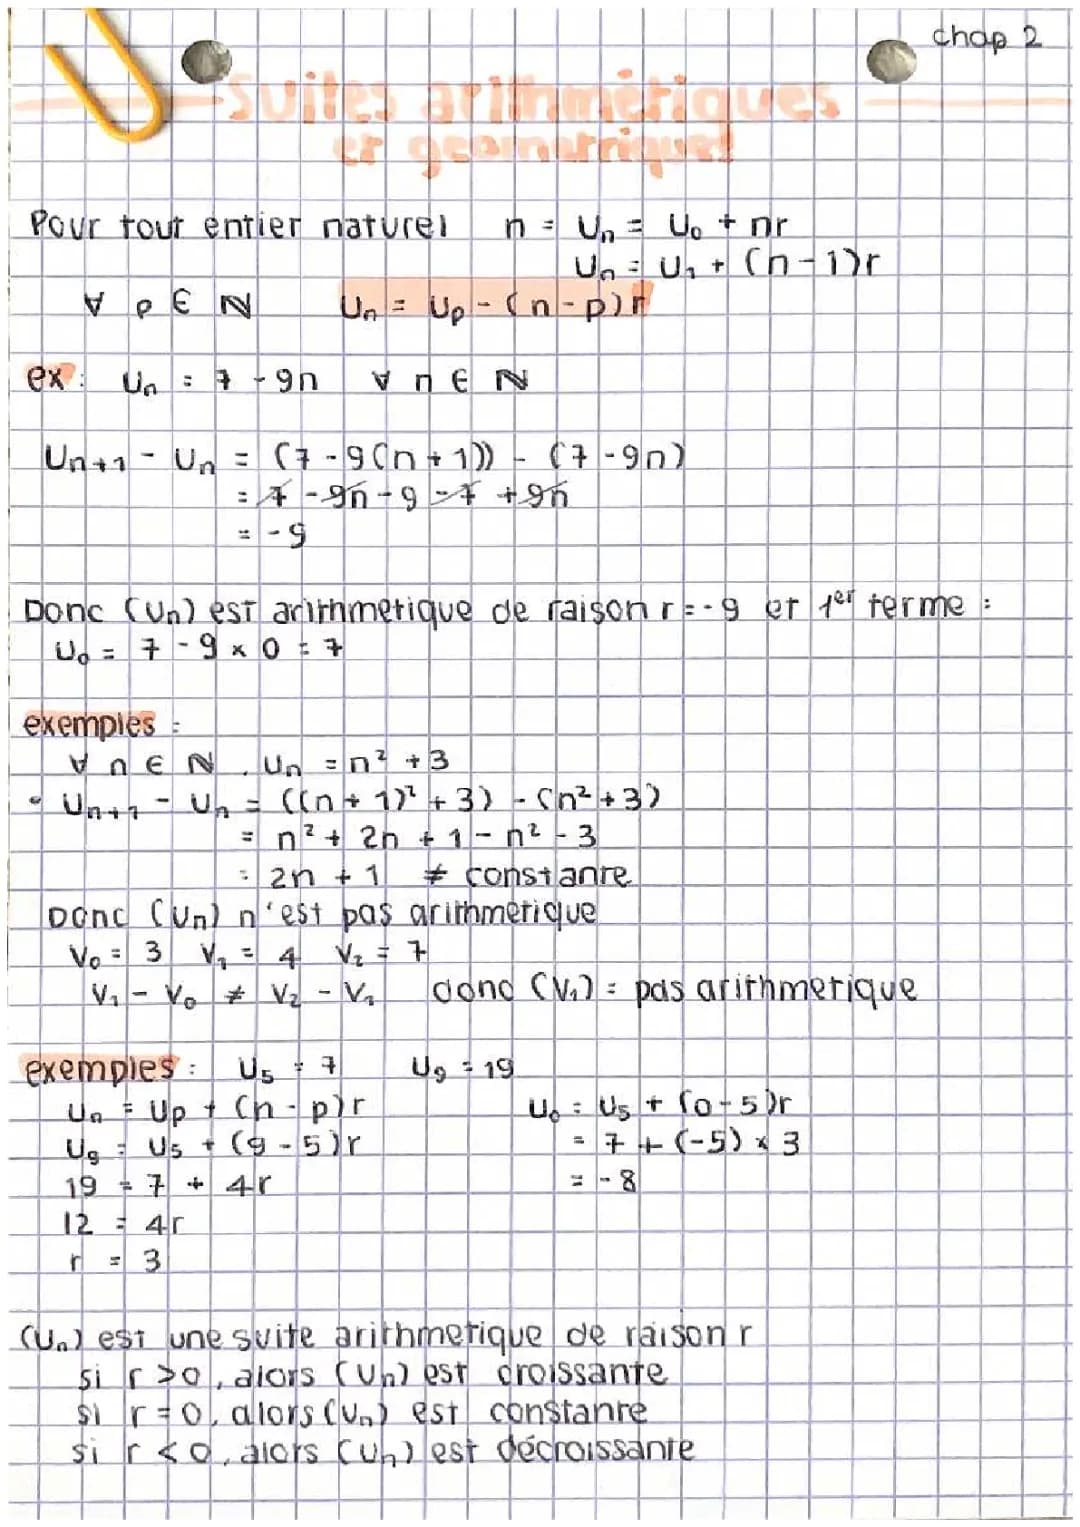 chap 2
Suites arithmétiques
et géométriques
Pour tout entier naturel n = Un = U0 + nr
Un = U1 + (n-1)r
∀ p ∈ ℕ Un = Up - (n-p)r
ex : Un = 7 - 9n ∀ n ∈ ℕ
Un+1 - Un = (7 - 9(n+1)) - (7 - 9n)
= 7 - 9n - 9 - 7 + 9n
= -9
Donc (Un) est arithmetique de raison r = -9 et 1er terme :
U0 = 7 - 9 × 0 = 7
exemples :
∀ n ∈ ℕ, Un = n² + 3
• Un+1 - Un = ((n+1)² + 3) - (n² + 3)
= n² + 2n + 1 - n² - 3
= 2n + 1 ≠ constante
Donc (Un) n'est pas arithmetique
V0 = 3 V1 = 4 V2 = 7
V1 - V0 ≠ V2 - V1 donc (V1) = pas arithmetique
exemples : U5 = 7 U9 = 19
Un = Up + (n-p)r U0 = U5 + (0-5)r
U9 = U5 + (9-5)r = 7 + (-5) × 3
19 = 7 + 4r = -8
12 = 4r
r = 3
(Un) est une suite arithmetique de raison r
si r > 0, alors (Un) est croissante
si r = 0, alors (Un) est constante
si r < 0, alors (Un) est décroissante